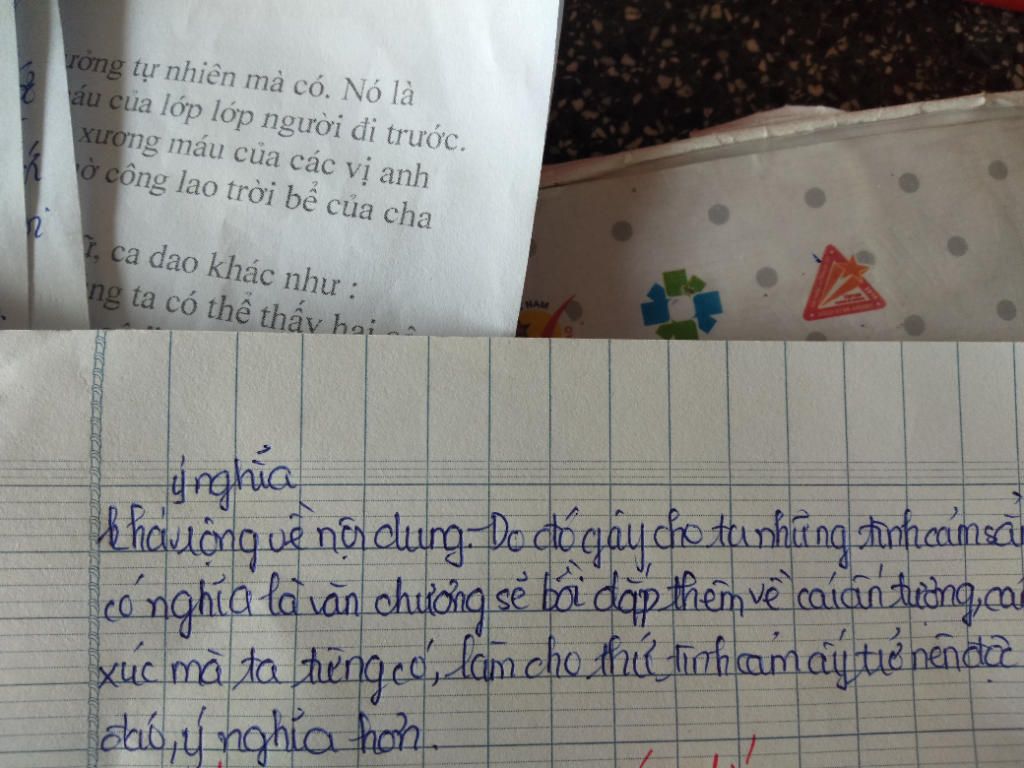 ưởng tự nhiên mà có. Nó là
áu của lớp lớp người đi trước.
xương máu của các vị anh
ờ công lao trời bể của cha
ữ, ca dao khác như :
ng ta có thể thấy hai
NAM
ý nghĩa
khá rộng về nội dung. Do đó gây cho ta những tình cảm sẵ
có nghĩa là văn chương sẽ bồi đắp thêm về cái ấn tượng, cả
xúc mà ta từng có, làm cho thứ tình cảm ấy trở nên độc
đáo, ý nghĩa hơn.